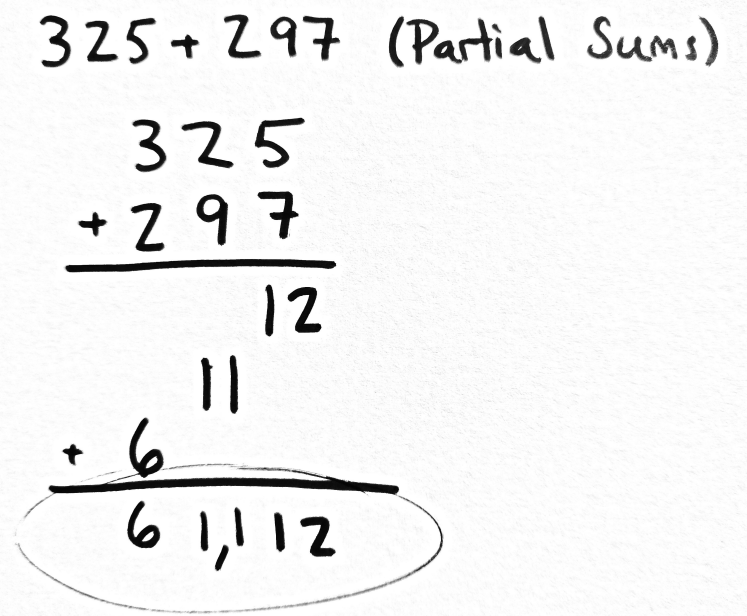 325 + 297 (Partial Sums)
325
+ 297
12
11
+ 6
61,112